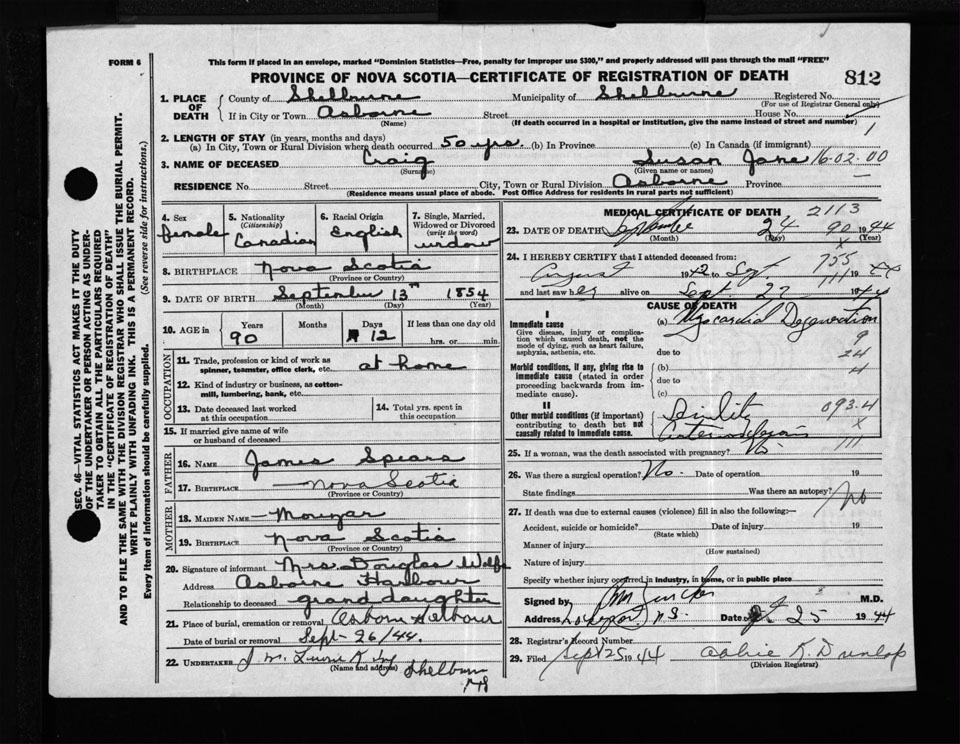 FORM 6
This form if placed in an envelope, marked "Dominion Statistics—Free, penalty for improper use $300," and properly addressed will pass through the mail "FREE"
PROVINCE OF NOVA SCOTIA—CERTIFICATE OF REGISTRATION OF DEATH 812
1. PLACE OF DEATH County of Shelburne Municipality of Shelburne Registered No.
(For use of Registrar General only)
If in City or Town Osborne Street House No.
(Name) (If death occurred in a hospital or institution, give the name instead of street and number) 1
2. LENGTH OF STAY (in years, months and days)
(a) In City, Town or Rural Division where death occurred 50 yrs. (b) In Province (c) In Canada (if immigrant)
3. NAME OF DECEASED Craig Susan Jane 16-02-00
(Surname) (Given name or names)
RESIDENCE No. Street City, Town or Rural Division Osborne Province
(Residence means usual place of abode. Post Office Address for residents in rural parts not sufficient)
4. Sex female
5. Nationality (Citizenship) Canadian
6. Racial Origin English
7. Single, Married, Widowed or Divorced (write the word) widow
8. BIRTHPLACE Nova Scotia
(Province or Country)
9. DATE OF BIRTH September 13th 1854
(Month) (Day) (Year)
10. AGE in Years Months Days If less than one day old
90 12 hrs. or min.
OCCUPATION
11. Trade, profession or kind of work as spinner, teamster, office clerk, etc. at home
12. Kind of industry or business, as cotton-mill, lumbering, bank, etc.
13. Date deceased last worked at this occupation
14. Total yrs. spent in this occupation
15. If married give name of wife or husband of deceased
FATHER
16. NAME James Spears
17. BIRTHPLACE Nova Scotia
(Province or Country)
MOTHER
18. MAIDEN NAME Mouzar
19. BIRTHPLACE Nova Scotia
(Province or Country)
20. Signature of informant Mrs. Douglas Wolfe
Address Osborne Harbour
Relationship to deceased granddaughter
21. Place of burial, cremation or removal Osborne Harbour
Date of burial or removal Sept-26/44.
22. UNDERTAKER Shelburne
(Name and address)
N.S.
MEDICAL CERTIFICATE OF DEATH 2113
23. DATE OF DEATH September 24 1944
90
(Month) (Day) (Year)
x
24. I HEREBY CERTIFY that I attended deceased from: 755
August 1942 to Sept. 1944
111
and last saw her alive on Sept. 22 1944
CAUSE OF DEATH
I
Immediate cause (a) Myocardial Degeneration
Give disease, injury or complication which caused death, not the mode of dying, such as heart failure, asphyxia, asthenia, etc.
due to
9
24
4
Morbid conditions, if any, giving rise to immediate cause (stated in order proceeding backwards from immediate cause).
(b)
due to
(c)
II
Other morbid conditions (if important) contributing to death but not causally related to immediate cause.
Senility 093.4
Arteriosclerosis x
111
25. If a woman, was the death associated with pregnancy? No
26. Was there a surgical operation? No. Date of operation 19
State findings Was there an autopsy? No
27. If death was due to external causes (violence) fill in also the following:—
Accident, suicide or homicide? Date of injury 19
(State which)
Manner of injury
(How sustained)
Nature of injury
Specify whether injury occurred in industry, in home, or in public place
Signed by M.D.
Address Lockeport N.S. Date 25 1944
28. Registrar's Record Number
29. Filed Sept 25 1944 K. Dunlop
(Division Registrar)
SEC. 46—VITAL STATISTICS ACT MAKES IT THE DUTY
OF THE UNDERTAKER OR PERSON ACTING AS UNDER-
TAKER TO OBTAIN ALL THE PARTICULARS REQUIRED
IN THE "CERTIFICATE OF REGISTRATION OF DEATH"
AND TO FILE THE SAME WITH THE DIVISION REGISTRAR WHO SHALL ISSUE THE BURIAL PERMIT.
WRITE PLAINLY WITH UNFADING INK. THIS IS A PERMANENT RECORD.
Every item of information should be carefully supplied. (See reverse side for instructions.)